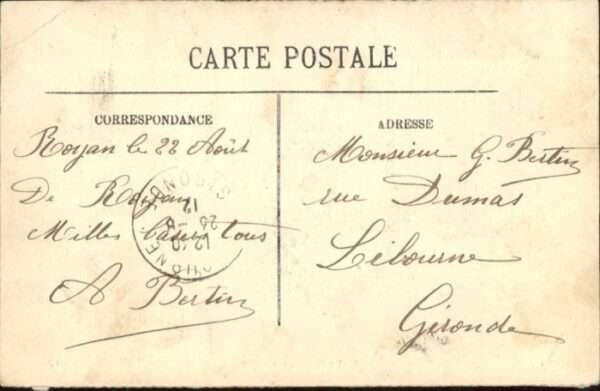 CARTE POSTALE
CORRESPONDANCE
Royan le 22 Août
De Royan
Milles baisers à tous
A Bertin
ADRESSE
Monsieur G. Bertin
rue Dumas
Libourne
Gironde